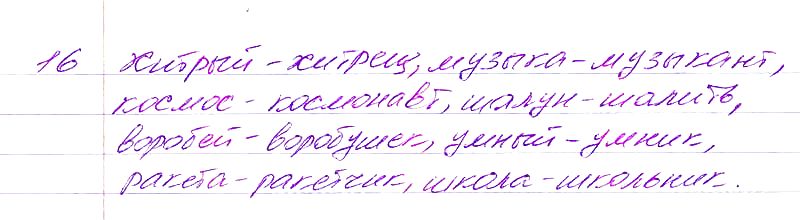 16 хитрый - хитрец, музыка - музыкант,
космос - космонавт, шалун - шалить,
воробей - воробушек, умный - умник,
ракета - ракетчик, школа - школьник.